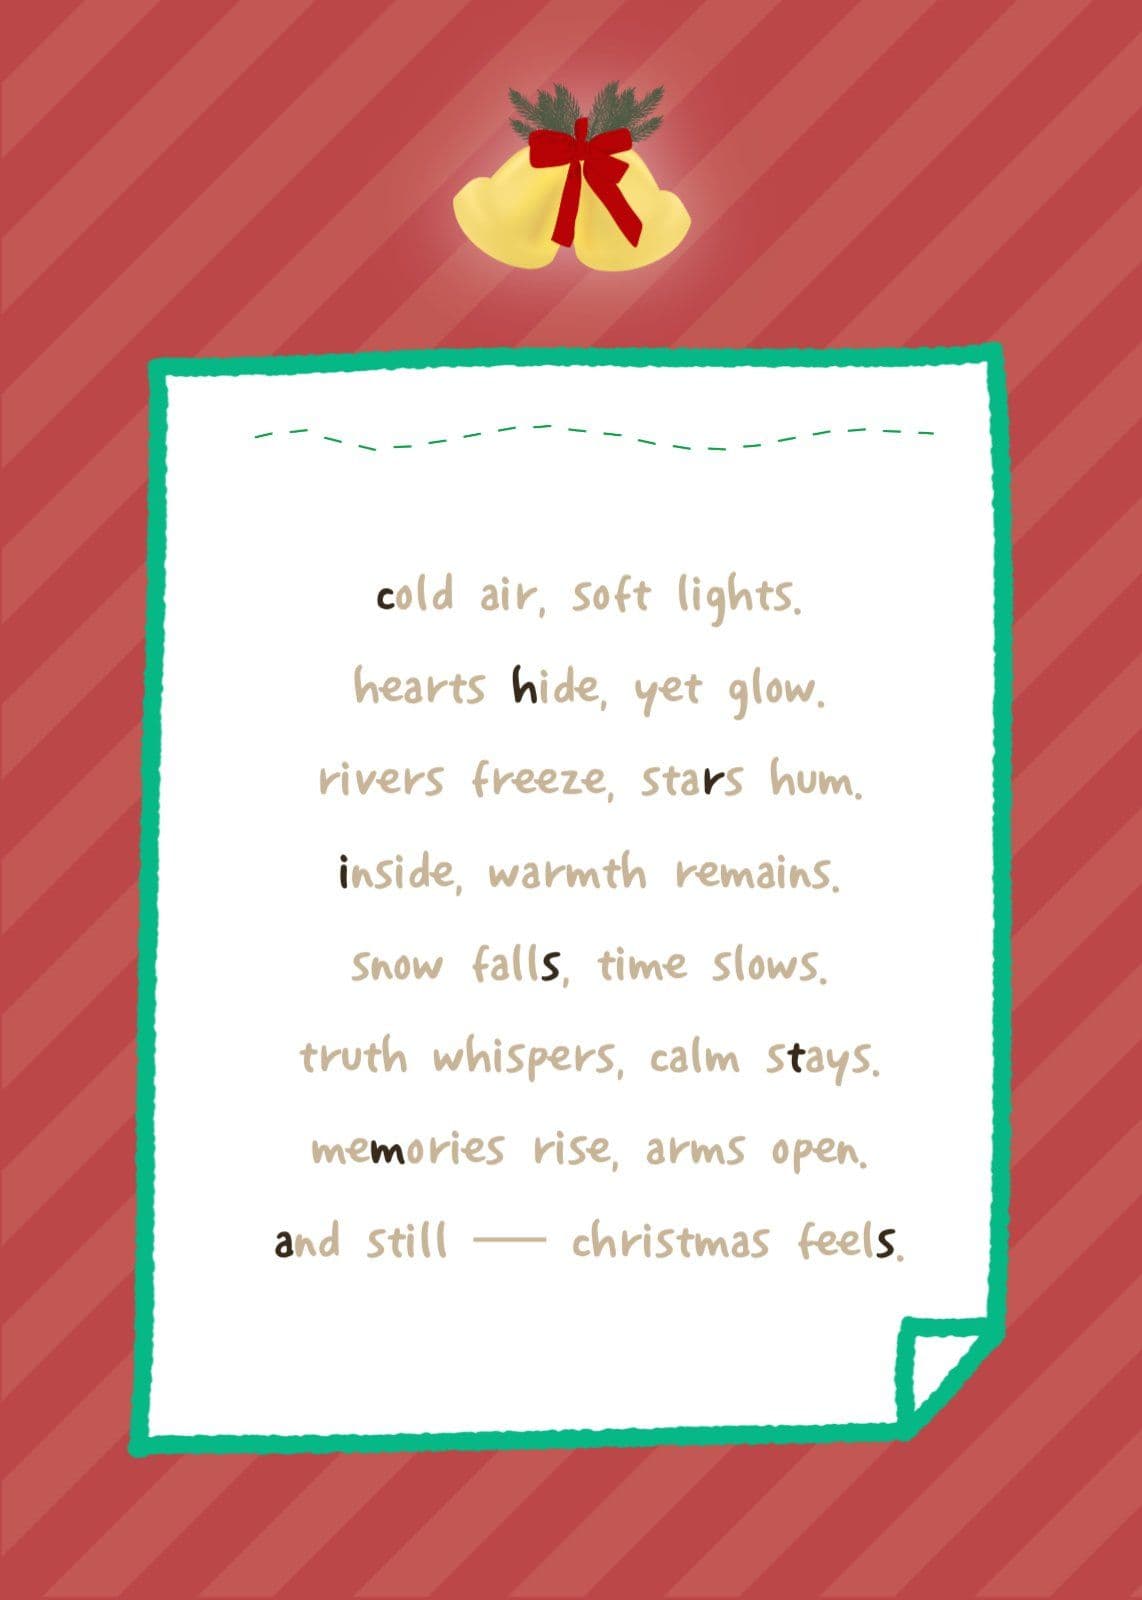 cold air, soft lights.
hearts hide, yet glow.
rivers freeze, stars hum.
inside, warmth remains.
snow falls, time slows.
truth whispers, calm stays.
memories rise, arms open.
and still — christmas feels.